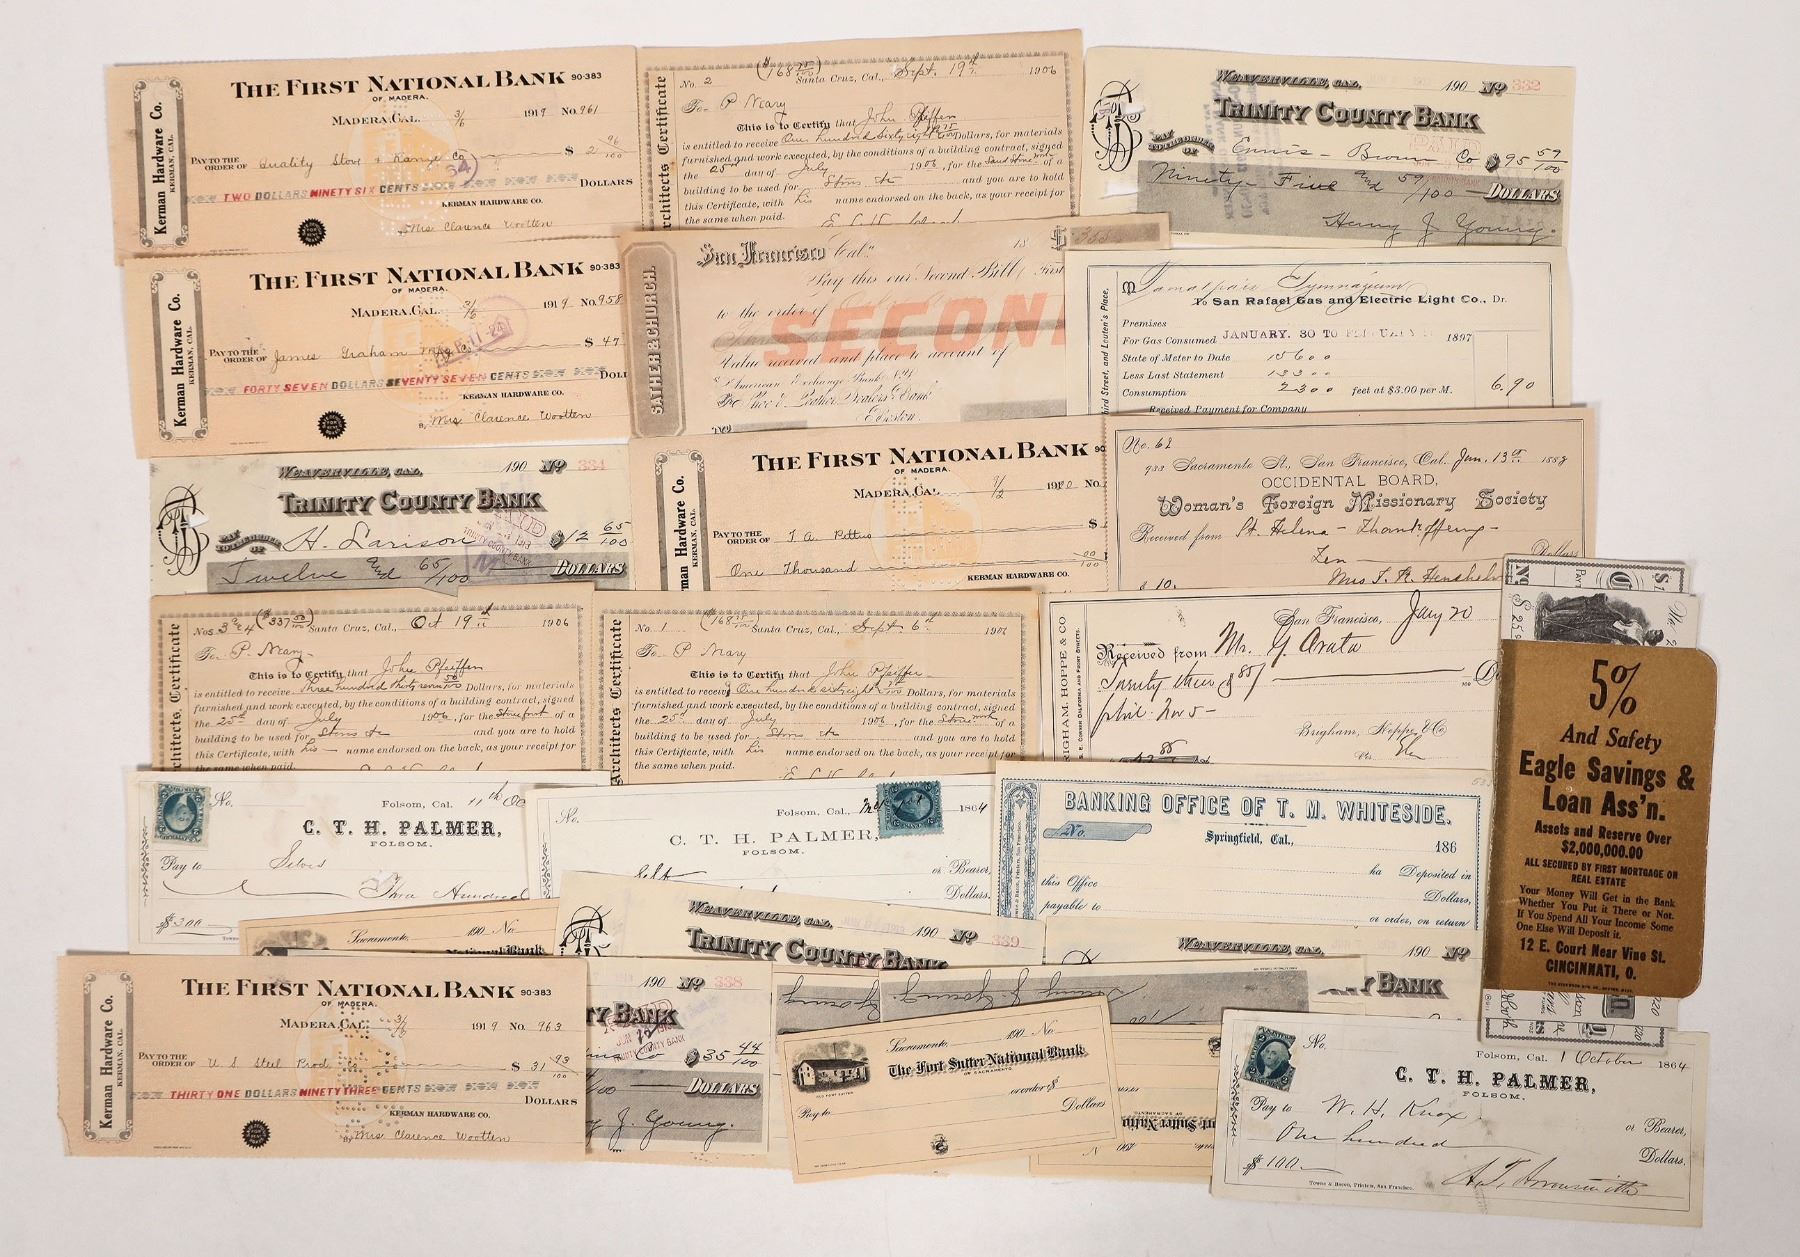 THE FIRST NATIONAL BANK 90-383
OF MADERA.
MADERA, CAL. 3/6 1919 No. 961
PAY TO THE ORDER OF Quality Stove & Range Co $ 2 96/100
TWO DOLLARS NINETY SIX CENTS DOLLARS
KERMAN HARDWARE CO.
Mrs Clarence Wootten
Kerman Hardware Co.
KERMAN, CAL.
Architects Certificate
No. 2 ($168 75/100) Santa Cruz, Cal., Sept. 19th 1906
To P Neary
This is to Certify that John Pfeiffer
is entitled to receive One hundred sixty eight 75/100 Dollars, for materials
furnished and work executed, by the conditions of a building contract, signed
the 25th day of July 1906, for the of a
building to be used for Stores &c and you are to hold
this Certificate, with his name endorsed on the back, as your receipt for
the same when paid.
WEAVERVILLE, CAL. 190 No 332
TRINITY COUNTY BANK
PAY TO THE ORDER OF Ennis-Brown Co $95 59/100
Ninety-Five and 59/100 DOLLARS
Henry J Young.
THE FIRST NATIONAL BANK 90-383
OF MADERA.
MADERA, CAL. 3/6 1919 No. 958
PAY TO THE ORDER OF James Graham Mfg Co $ 47
FORTY SEVEN DOLLARS SEVENTY SEVEN CENTS DOLL
KERMAN HARDWARE CO.
By Mrs Clarence Wootten
Kerman Hardware Co.
KERMAN, CAL.
SATHER & CHURCH.
San Francisco Cal. 18 $ 338
Pay this our Second Bill (First
to the order of
SECON
Value received and place to account of
American Exchange Bank, N.Y.
Shoe & Leather Dealers Bank
Boston
Tamalpais Gymnasium
To San Rafael Gas and Electric Light Co., Dr.
Third Street, and Lauten's Place,
Premises
For Gas Consumed JANUARY, 30 TO FEBRUARY 1897
State of Meter to Date 15600
Less Last Statement 13300
Consumption 2300 feet at $3.00 per M. 6.90
Received Payment for Company
WEAVERVILLE, CAL. 190 No 334
TRINITY COUNTY BANK
PAY TO THE ORDER OF H. Larison $12 65/100
Twelve and 65/100 DOLLARS
THE FIRST NATIONAL BANK 90
OF MADERA.
MADERA, CAL. 7/2 1920 No.
PAY TO THE ORDER OF T A Pettus $
One Thousand 00/100
KERMAN HARDWARE CO.
rman Hardware Co.
KERMAN, CAL.
No. 62
933 Sacramento St., San Francisco, Cal. Jan. 13th 188
OCCIDENTAL BOARD,
Woman's Foreign Missionary Society
Received from St Helena - Thankoffering -
Ten - Dollars
$10.
Architects Certificate
Nos 3 & 4 ($337 50/100) Santa Cruz, Cal., Oct 19th 1906
To P. Neary
This is to Certify that John Pfeiffer
is entitled to receive Three hundred thirty seven 50 Dollars, for materials
furnished and work executed, by the conditions of a building contract, signed
the 25th day of July 1906, for the Storefront of a
building to be used for Stores &c and you are to hold
this Certificate, with his name endorsed on the back, as your receipt for
the same when paid.
Architects Certificate
No. 1 ($168 75/100) Santa Cruz, Cal., Sept. 6th 1906
To P Neary
This is to Certify that John Pfeiffer
is entitled to receive One hundred sixty eight Dollars, for materials
furnished and work executed, by the conditions of a building contract, signed
the 25th day of July 1906, for the of a
building to be used for Stores &c and you are to hold
this Certificate, with his name endorsed on the back, as your receipt for
the same when paid.
RIGHAM, HOPPE & CO
S. E. CORNER CALIFORNIA AND FRONT STREETS.
San Francisco, Jany 20
Received from Mr. G Arata
Twenty three & 85/100
Brigham, Hoppe & Co
Per
5%
And Safety
Eagle Savings &
Loan Ass'n.
Assets and Reserve Over
$2,000,000.00
ALL SECURED BY FIRST MORTGAGE ON
REAL ESTATE
Your Money Will Get in the Bank
Whether You Put it There or Not.
If You Spend All Your Income Some
One Else Will Deposit it.
12 E. Court Near Vine St.
CINCINNATI, O.
No. Folsom, Cal. 11th Oc
C. T. H. PALMER,
FOLSOM.
Pay to Selves
Three Hundred
$300
No. Folsom, Cal. 1864
C. T. H. PALMER,
FOLSOM.
Self or Bearer,
Dollars.
BANKING OFFICE OF T. M. WHITESIDE.
No. Springfield, Cal., 186
ha Deposited in
this Office Dollars,
payable to or order, on return
Sacramento. 190 No.
National Bank
WEAVERVILLE, CAL. 190 No 339
TRINITY COUNTY BANK
WEAVERVILLE, CAL. 190 No
TY BANK
THE FIRST NATIONAL BANK 90-383
OF MADERA.
MADERA, CAL. 3/6 1919 No. 963
PAY TO THE ORDER OF U S Steel Prod Co $ 31 93/100
THIRTY ONE DOLLARS NINETY THREE CENTS DOLLARS
KERMAN HARDWARE CO.
By Mrs Clarence Wootten
Kerman Hardware Co.
KERMAN, CAL.
190 No 338
TY BANK
$35 44/100
DOLLARS
J. Young.
Sacramento. 190 No.
The Fort Sutter National Bank
OF SACRAMENTO
OLD FORT SUTTER
or order $
Pay to Dollars
No. Folsom, Cal. 1 October 1864
C. T. H. PALMER,
FOLSOM.
Pay to W. H. Knox or Bearer,
One hundred Dollars.
$100
Towne & Bacon, Printers, San Francisco.